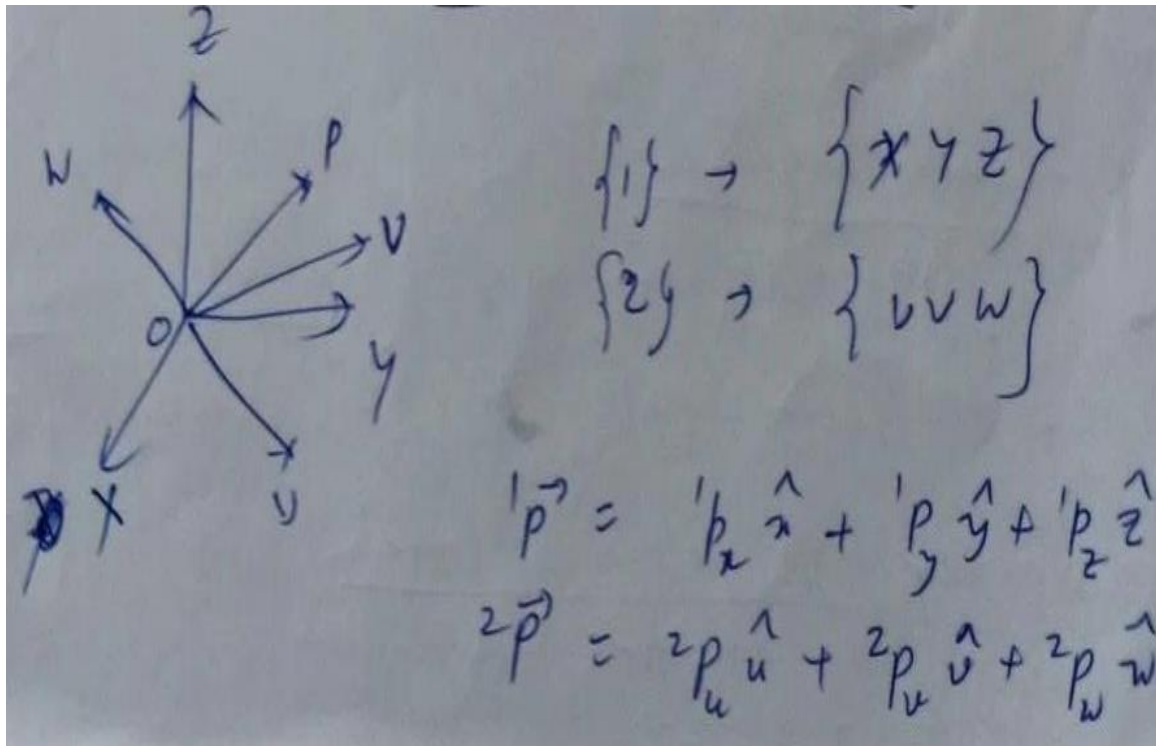 Z
W
P
V
O
Y
X
U
{1} → {X Y Z}
{2} → {U V W}
¹p⃗ = ¹pₓ x̂ + ¹p_y ŷ + ¹p_z ẑ
²p⃗ = ²p_u û + ²p_v v̂ + ²p_w ŵ